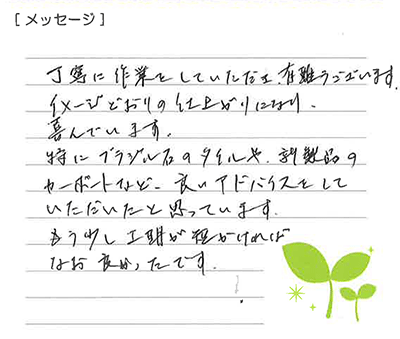 [メッセージ]
丁寧に作業をしていただき、有難うございます。
イメージどおりの仕上がりになり、
喜んでいます。
特にブラジル石のタイルや、新製品の
カーポートなど、良いアドバイスをして
いただいたと思っています。
もう少し工期が短かければ
なお良かったです。